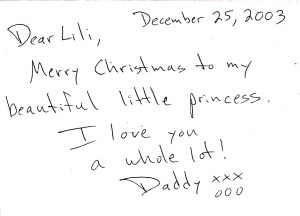 December 25, 2003
Dear Lili,
Merry Christmas to my
beautiful little princess.
I love you
a whole lot!
Daddy xxx
ooo